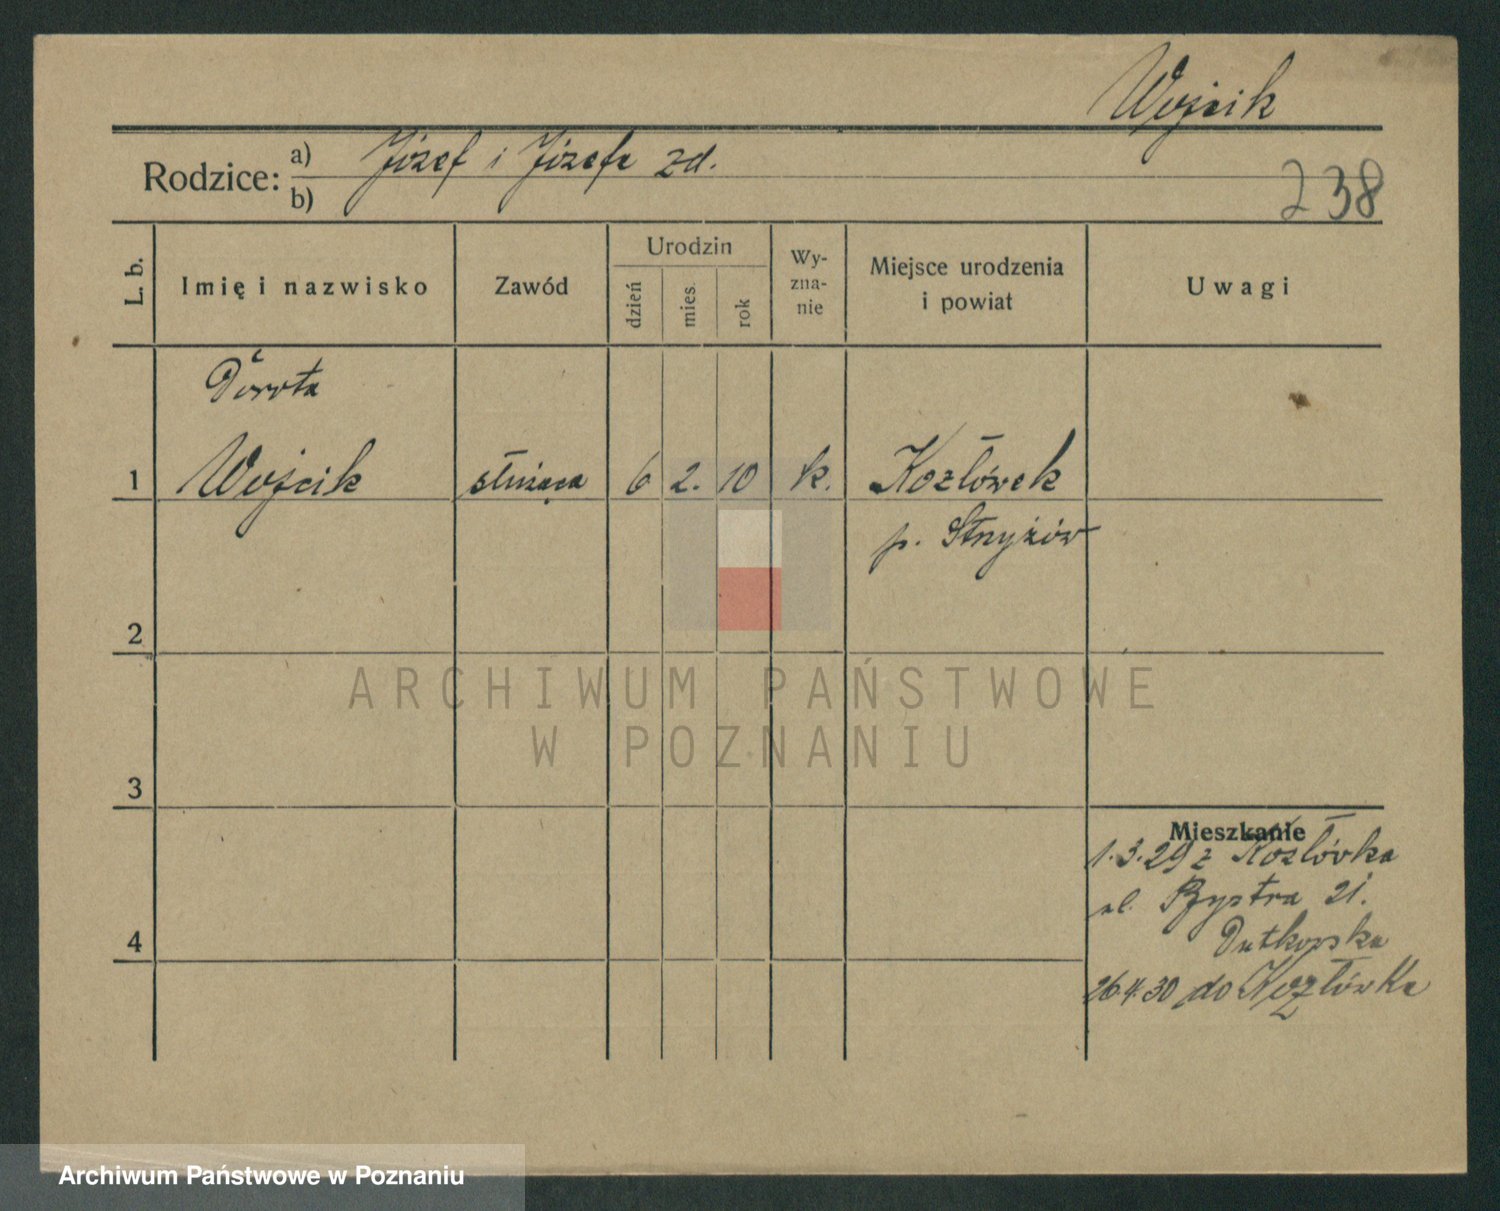 Wojcik
Rodzice: a) Józef i Józefa zd.
b)
238
L. b. Imię i nazwisko Zawód Urodzin dzień mies. rok Wy-zna-nie Miejsce urodzenia i powiat Uwagi
Dorota
1 Wojcik służąca 6 2. 10 k. Kozłówek
p. Strzyżów
2
ARCHIWUM PAŃSTWOWE
W POZNANIU
3
Mieszkanie
1.3.29 z Kozłówka
ul. Bystra 21.
Dutkowska
4
26.4.30 do Kozłówka
Archiwum Państwowe w Poznaniu